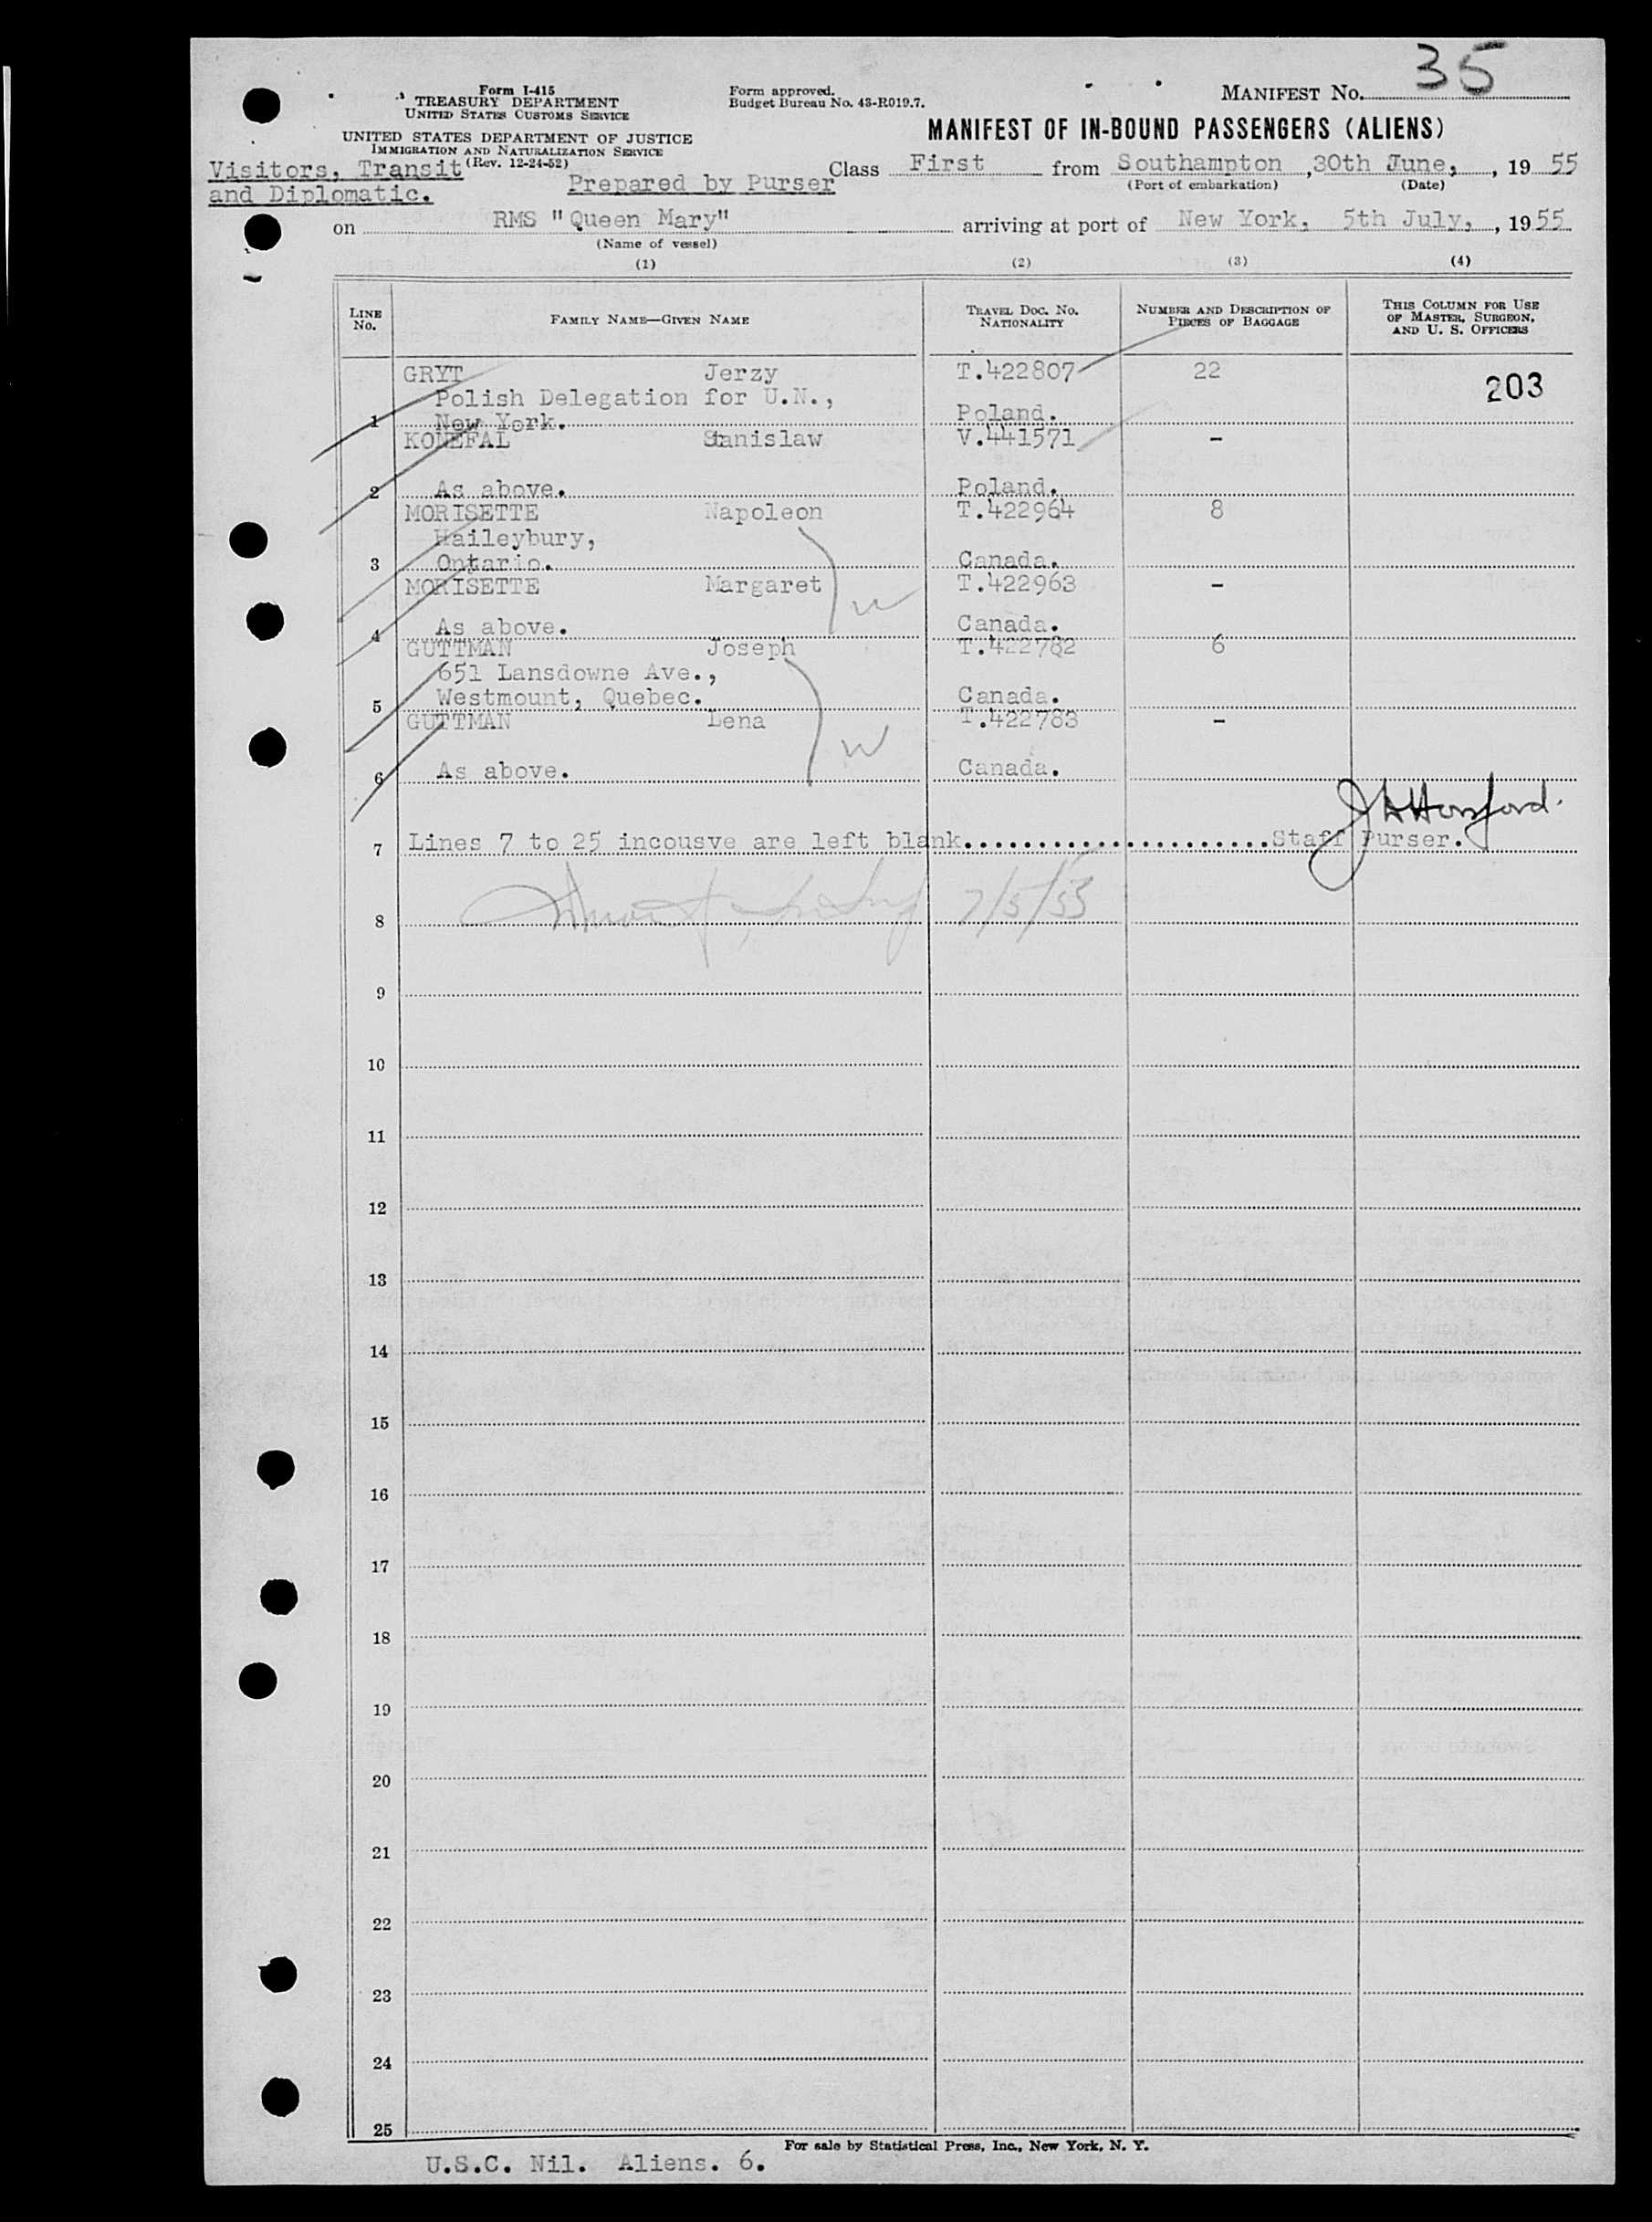 35
Form I-415
TREASURY DEPARTMENT
UNITED STATES CUSTOMS SERVICE
UNITED STATES DEPARTMENT OF JUSTICE
IMMIGRATION AND NATURALIZATION SERVICE
(Rev. 12-24-52)
Form approved.
Budget Bureau No. 43-R019.7.
MANIFEST NO.
MANIFEST OF IN-BOUND PASSENGERS (ALIENS)
Visitors, Transit
and Diplomatic.
Prepared by Purser
Class First from Southampton, 30th June, , 19 55
(Port of embarkation) (Date)
on RMS "Queen Mary" arriving at port of New York, 5th July, , 19 55
(Name of vessel)
(1) (2) (3) (4)
LINE NO. FAMILY NAME—GIVEN NAME TRAVEL DOC. NO. NATIONALITY NUMBER AND DESCRIPTION OF PIECES OF BAGGAGE THIS COLUMN FOR USE OF MASTER, SURGEON, AND U. S. OFFICERS
GRYT Jerzy T.422807 22 203
Polish Delegation for U.N.,
1 New York. Poland.
KONEFAL Stanislaw V.441571 -
2 As above. Poland.
MORISETTE Napoleon T.422964 8
Haileybury,
3 Ontario. Canada.
MORISETTE Margaret T.422963 -
W
4 As above. Canada.
GUTTMAN Joseph T.422782 6
651 Lansdowne Ave.,
5 Westmount, Quebec. Canada.
GUTTMAN Lena T.422783 -
W
6 As above. Canada.
7 Lines 7 to 25 incousve are left blank......................Staff Purser.
8 7/5/55
9
10
11
12
13
14
15
16
17
18
19
20
21
22
23
24
25
For sale by Statistical Press, Inc., New York, N. Y.
U.S.C. Nil. Aliens. 6.